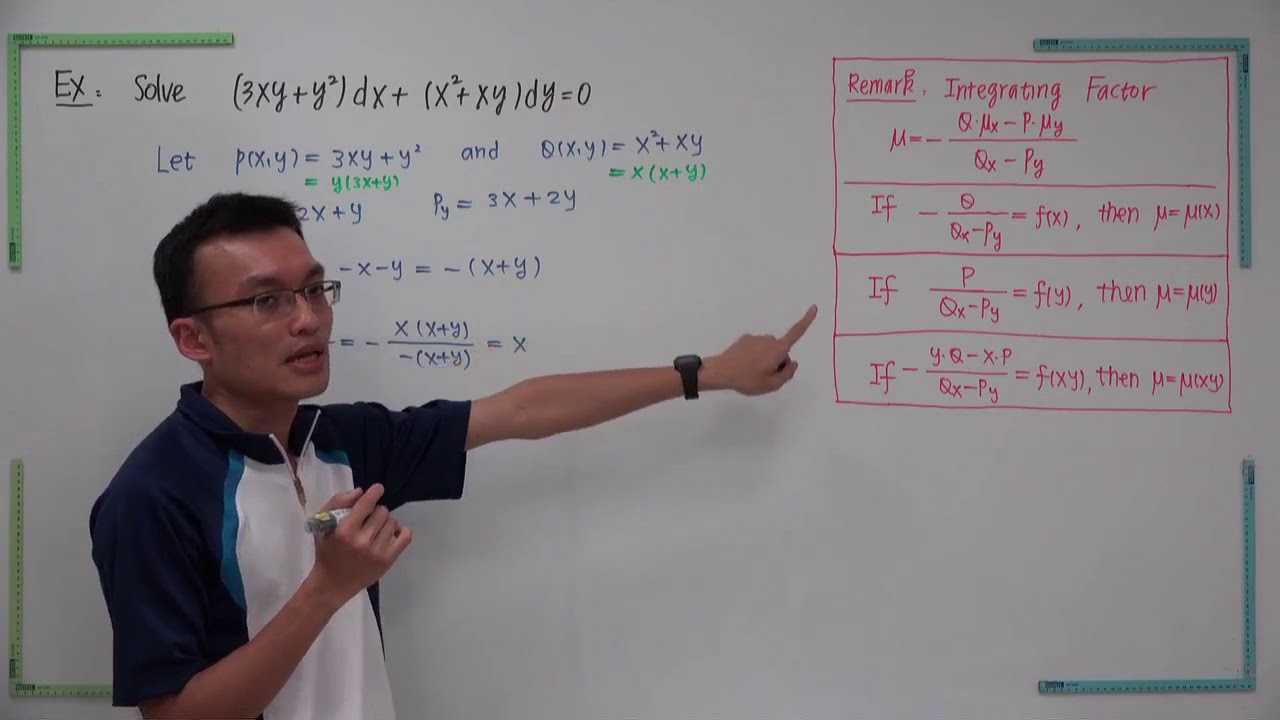 Ex: Solve (3xy+y²)dx+ (x²+xy)dy=0
Let P(x,y) = 3xy+y² and Q(x,y) = x²+xy
= y(3x+y) = x(x+y)
2x+y Py = 3x+2y
-x-y = -(x+y)
= - x(x+y) / -(x+y) = x
Remark: Integrating Factor
μ = - Q·μx - P·μy / Qx - Py
If - Q / Qx-Py = f(x), then μ=μ(x)
If P / Qx-Py = f(y), then μ=μ(y)
If - y·Q - x·P / Qx-Py = f(xy), then μ=μ(xy)